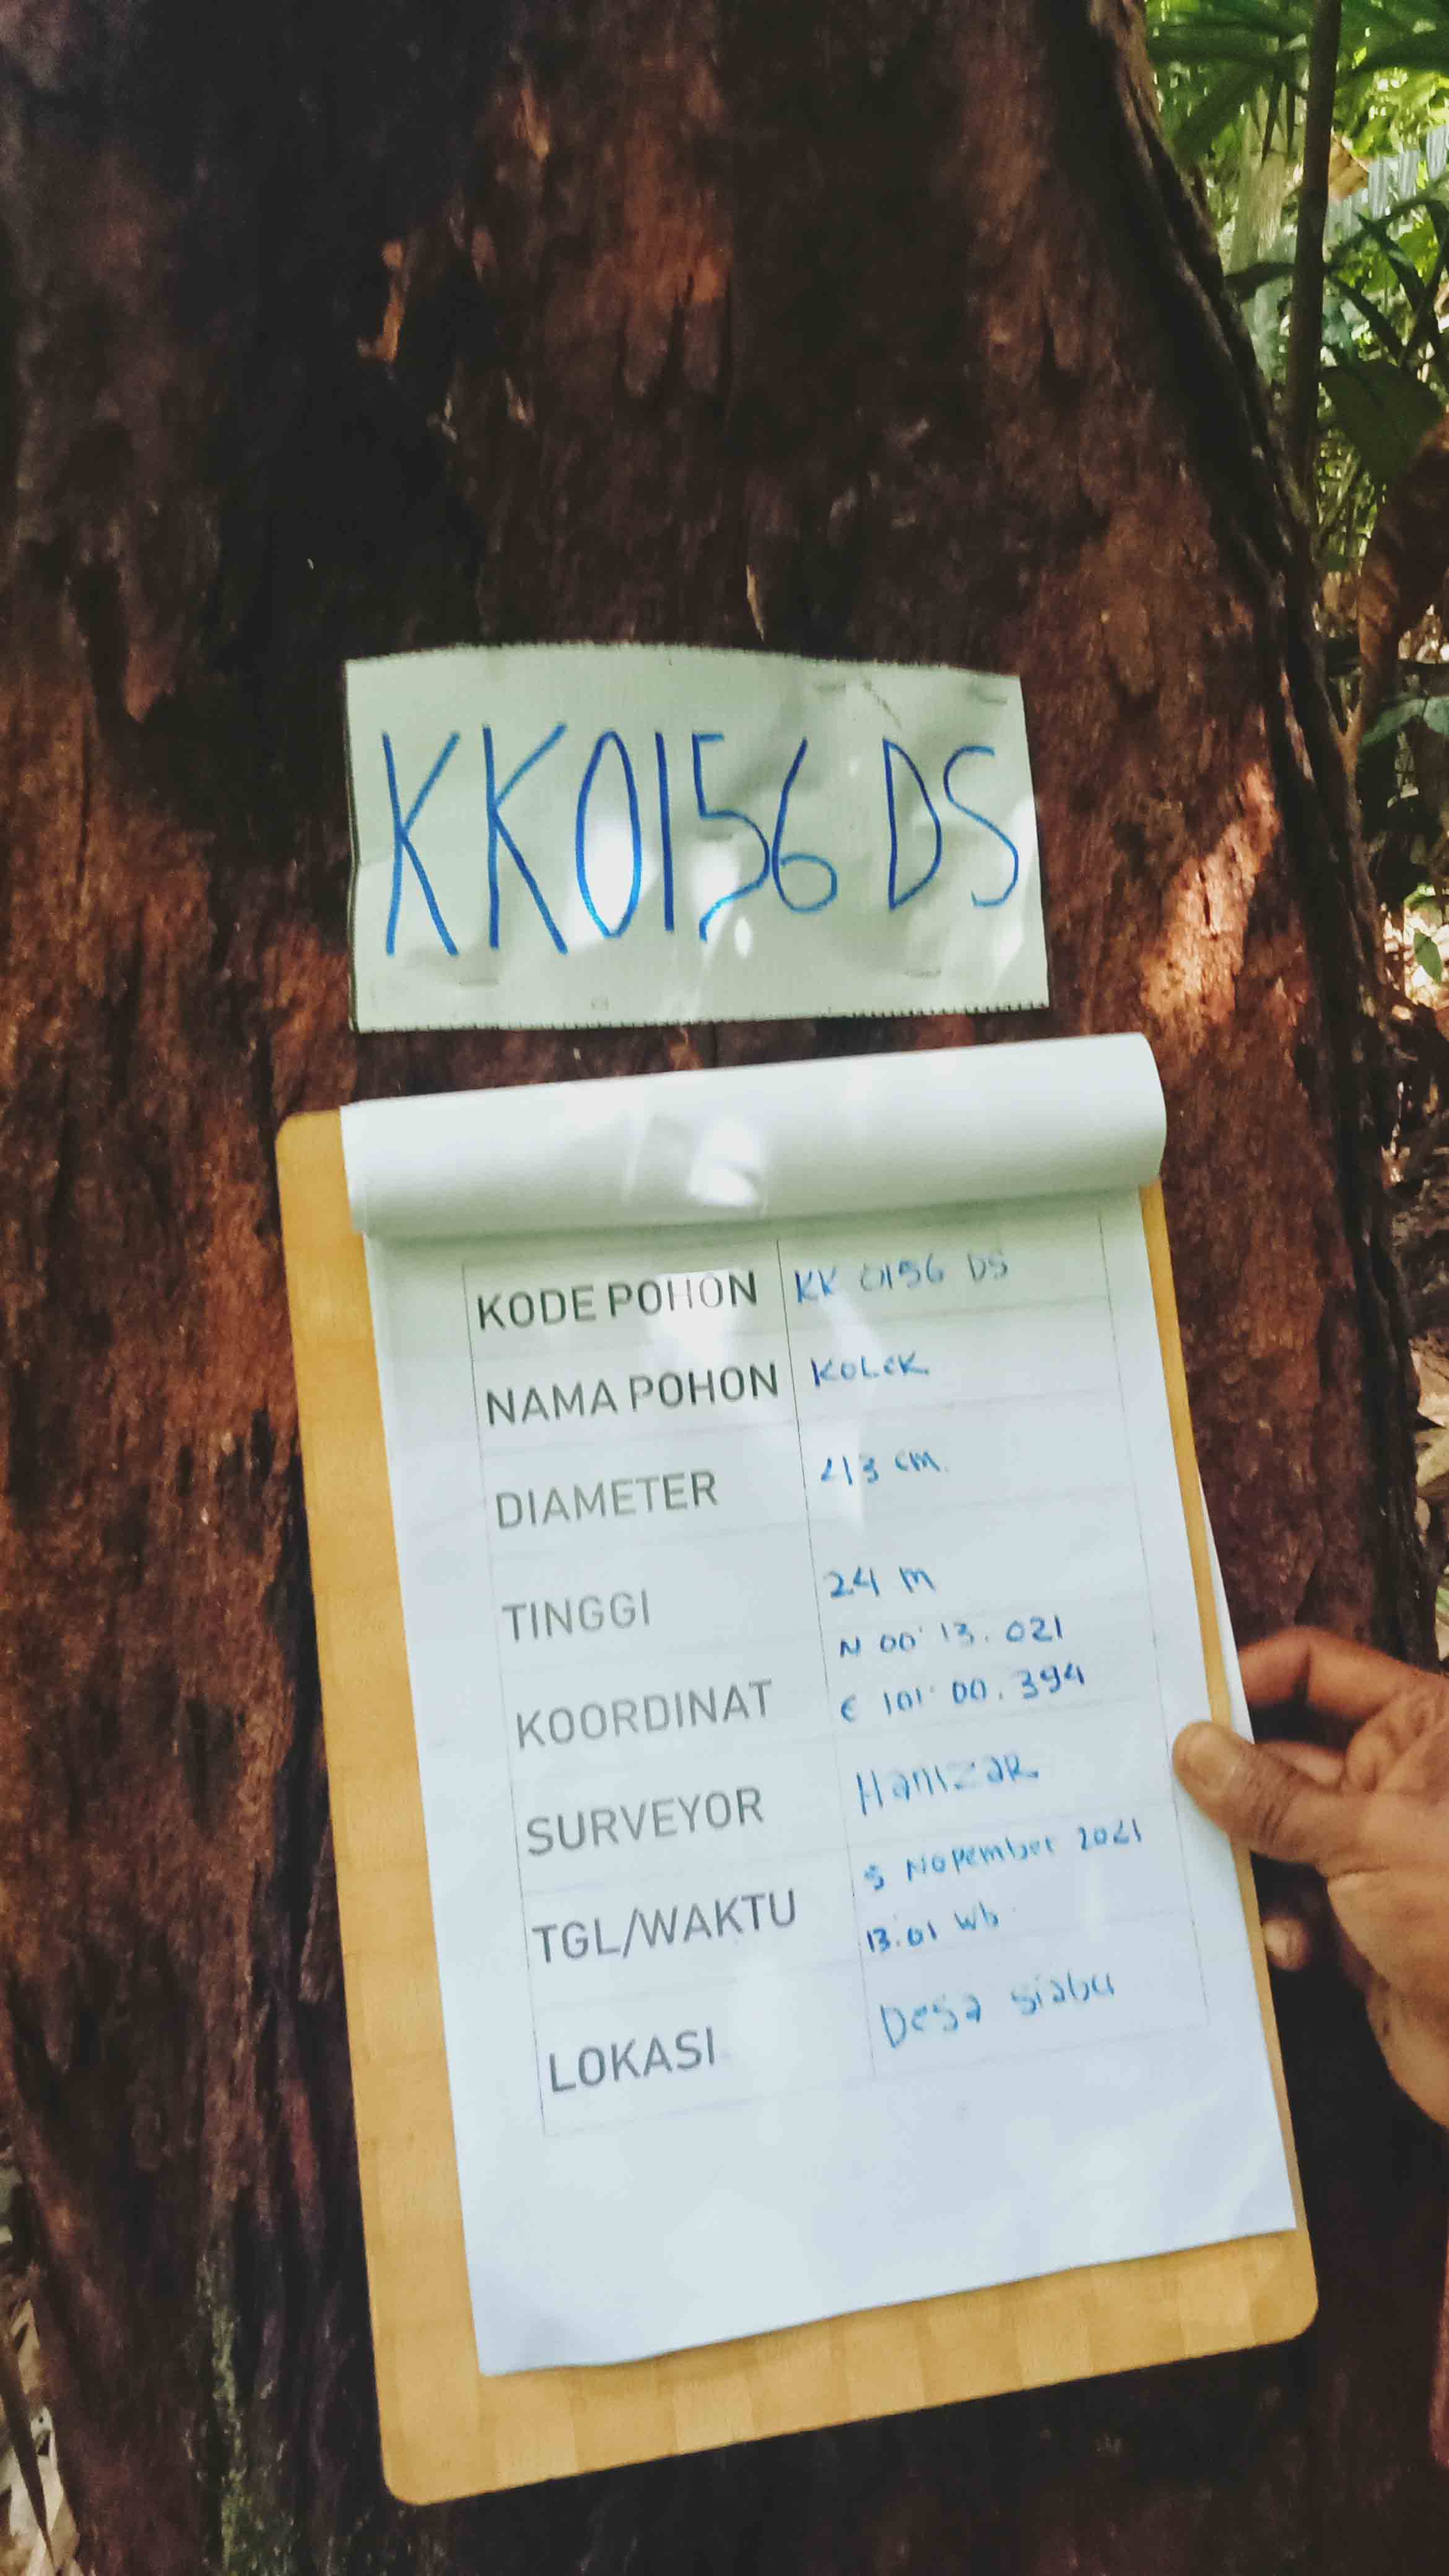 KK0156 DS
KODE POHON KK 0156 DS
NAMA POHON KOLEK
DIAMETER 213 cm
TINGGI 24 m
KOORDINAT N 00° 13. 021
E 101° 00. 394
SURVEYOR Hamzar
TGL/WAKTU 5 Nopember 2021
13.01 wb
LOKASI Desa siabu